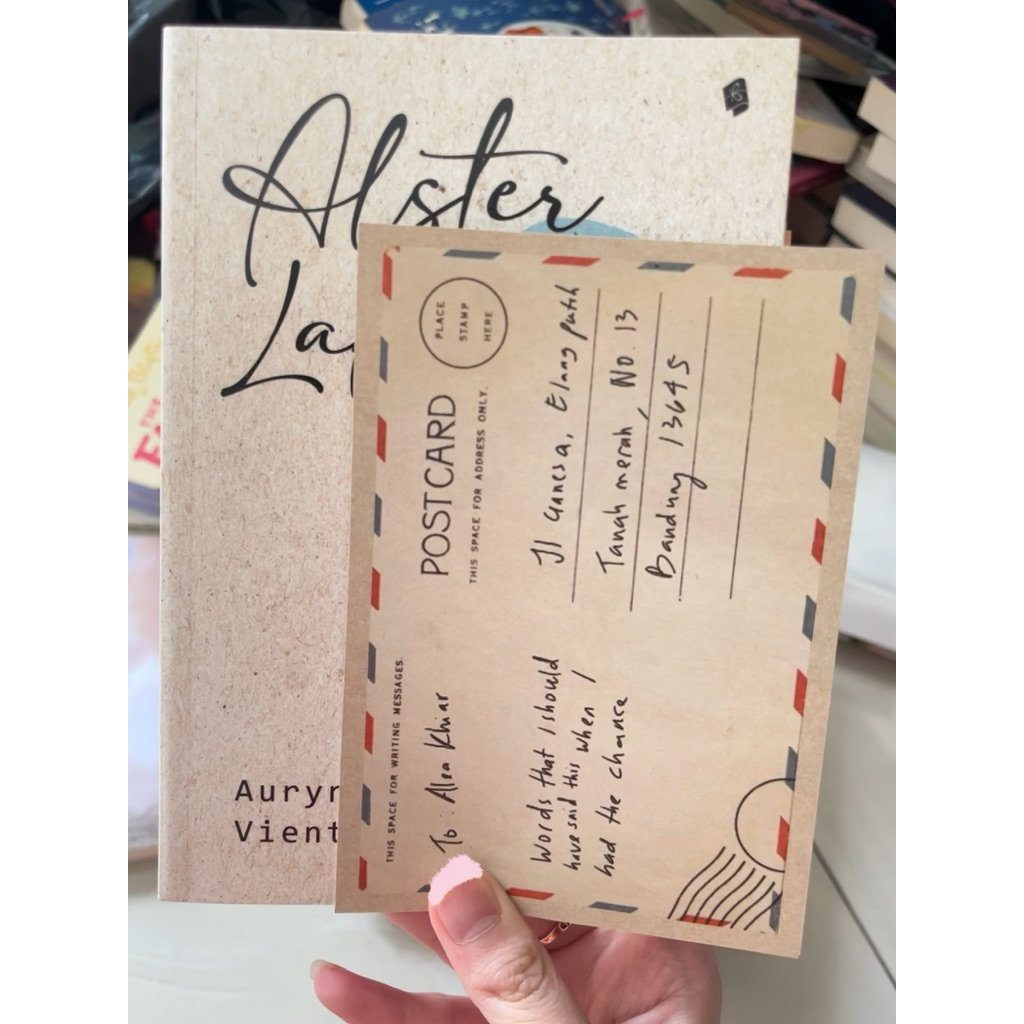 Alster
La
Auryn
Vient
POSTCARD
THIS SPACE FOR ADDRESS ONLY.
PLACE
STAMP
HERE
THIS SPACE FOR WRITING MESSAGES.
To : Alea Khiar
Words that I should
have said this when I
had the chance
Jl Ganesa, Elang putih
Tanah merah, No. 13
Bandung 13645